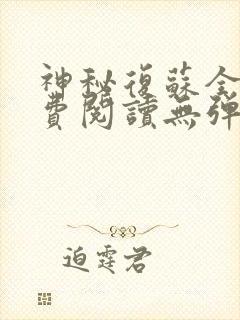 神秘復蘇全
費閱讀無彈
迫霆君